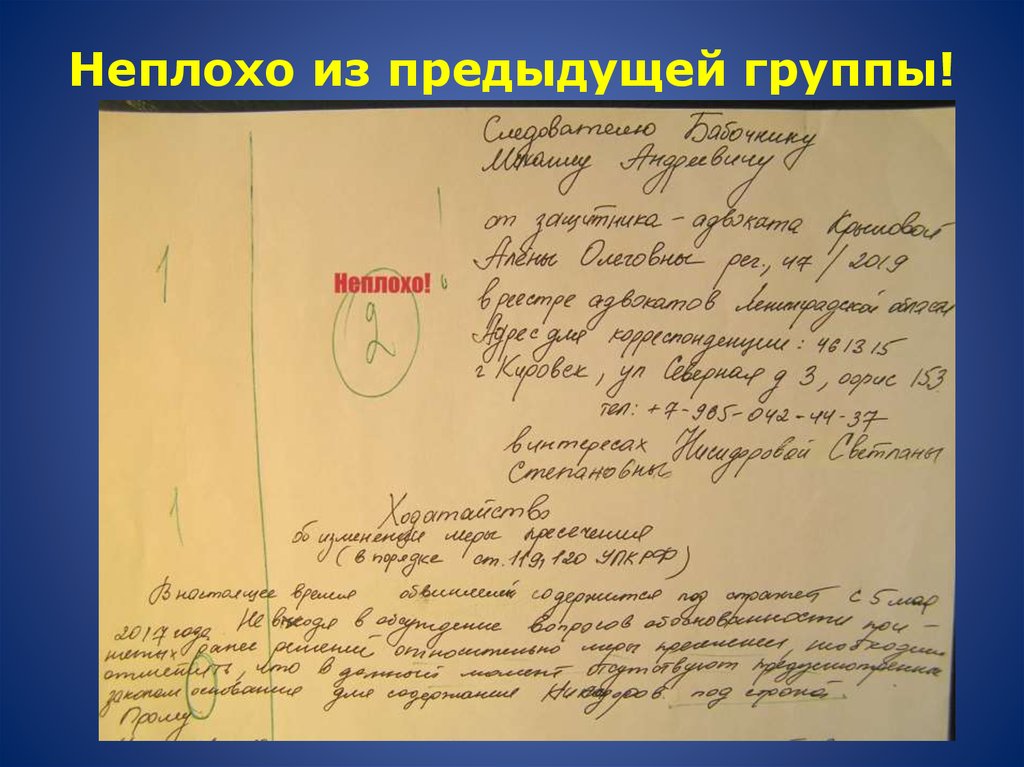 Неплохо из предыдущей группы!
Следователю Бабочкину
Михаилу Андреевичу
от защитника – адвоката Крысовой
Алёны Олеговны рег., 47 / 2019
в реестре адвокатов Ленинградской области
Адрес для корреспонденции: 461315
г Кировск, ул Северная д 3, офис 153
тел: +7-965-042-44-37
в интересах Никифоровой Светланы
Степановны
1
Неплохо!
2
1
Ходатайство
об изменении меры пресечения
(в порядке ст. 119, 120 УПК РФ)
В настоящее время содержится под стражей с 5 мая
2017 года. Не входя в обсуждение вопросов обоснованности при-
нятых ранее решений относительно меры пресечения, необходимо
отметить, что в данный момент отсутствуют предусмотренные
законом основания для содержания под стражей.
Прошу